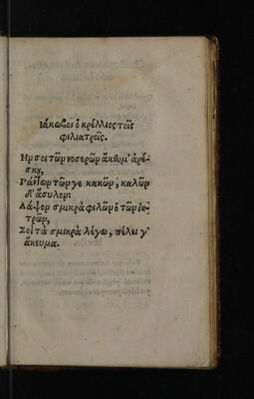 Ιάκωβος ὁ κρέλλιος τοῖς
φιλιάτροις.
Ην σοι τῶν νοσερῶν ἄκθυμ᾽ ἀρέ-
σκῃ,
Ράϊσον τῶν γε κακῶν, καλῶν
δ᾽ ἄσυλον:
Λάψον σμικρὰ φίλων ὁ τῶν ἰα-
τρῶν,
Σοι τὰ σμικρὰ λέγω, πέλει γ᾽
ἄκευμα.